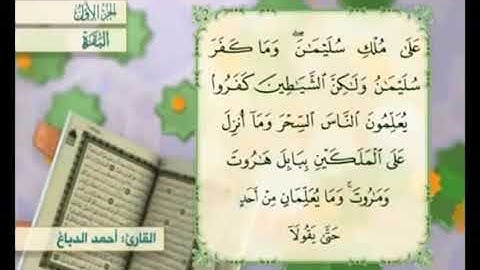 الجزء الأول
البقرة
عَلَىٰ مُلْكِ سُلَيْمَٰنَ ۖ وَمَا كَفَرَ
سُلَيْمَٰنُ وَلَٰكِنَّ ٱلشَّيَٰطِينَ كَفَرُوا۟
يُعَلِّمُونَ ٱلنَّاسَ ٱلسِّحْرَ وَمَآ أُنزِلَ
عَلَى ٱلْمَلَكَيْنِ بِبَابِلَ هَٰرُوتَ
وَمَٰرُوتَ ۚ وَمَا يُعَلِّمَانِ مِنْ أَحَدٍ
حَتَّىٰ يَقُولَآ
القارئ: أحمد الدباغ